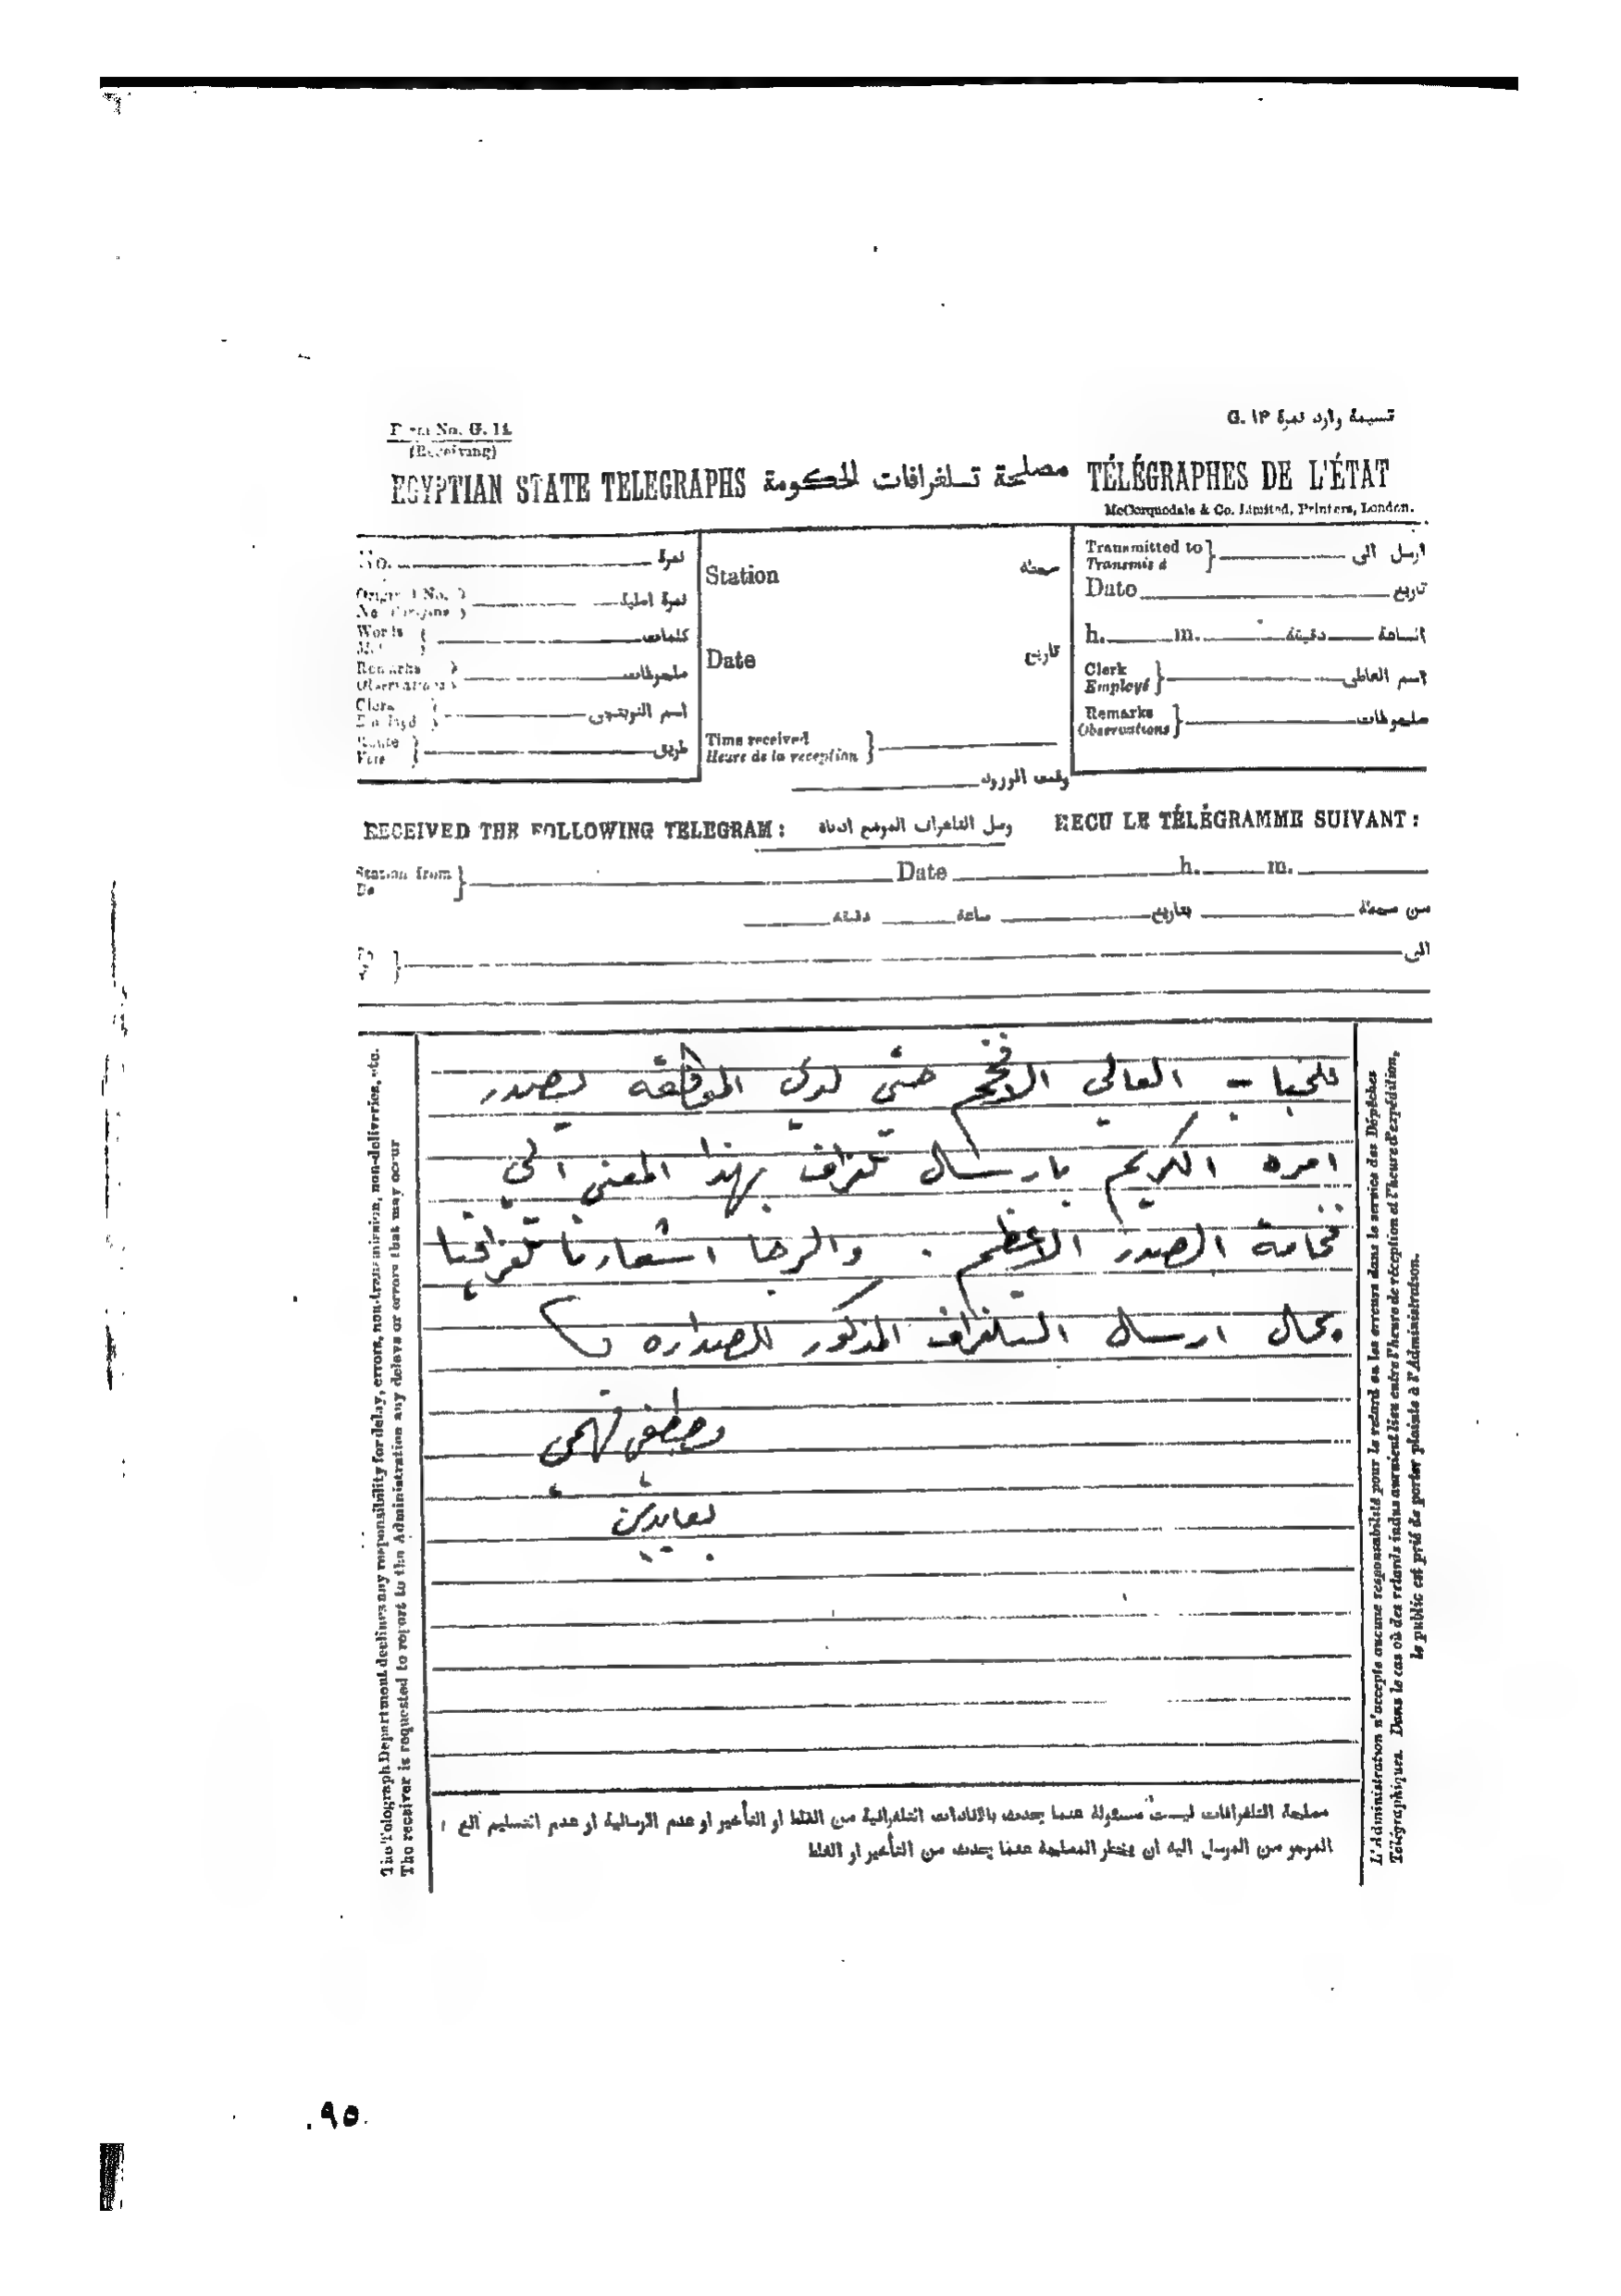 Form No. G. 14
(Receiving)
G. ١٣ قسيمة وارد نمرة
EGYPTIAN STATE TELEGRAPHS مصلحة تلغرافات الحكومة TÉLÉGRAPHES DE L'ÉTAT
McCorquodale & Co. Limited, Printers, London.
No. نمرة
Station محطة
Transmitted to ارسل الى
Transmis à
Date تاريخ
Words كلمات
h. m. دقيقة الساعة
Date تاريخ
Remarks ملحوظات
Observations
Clerk اسم
Employé
Clerk اسم
Employé
Remarks ملحوظات
Observations
Route طريق
Time received
Heure de la reception
وقت الورود
RECEIVED THE FOLLOWING TELEGRAM: وصل التلغراف الموضح ادناه RECU LE TÉLÉGRAMME SUIVANT:
Station from Date h. m.
De
من محطة بتاريخ ساعة دقيقة
الى
للجناب العالي الافخم حتى لدى الموافقه يصدر
امره الكريم بارسال تلغراف بهذا المعنى الى
فخامة الصدر الاعظم . والرجا اشعارنا تلغرافيا
بحال ارسال التلغراف المذكور للصداره
مصطفى فهمى
بعابدين
The Telegraph Department declines any responsibility for delay, errors, non-transmission, non-deliveries, etc.
The receiver is requested to report to the Administration any delays or errors that may occur
L'Administration n'accepte aucune responsabilité pour le retard ou les erreurs dans le service des Dépêches
Télégraphiques. Dans le cas où des retards indus auraient lieu entre l'heure de réception et l'heure d'expédition,
le public est prié de porter plainte à l'Administration.
مصلحة التلغرافات ليست مسئولة عما يحدث بالافادات التلغرافية من الغلط او التأخير او عدم الارسالية او عدم التسليم الخ
المرجو من المرسل اليه ان يخطر المصلحة عما يحدث من التأخير او الغلط
٩٥